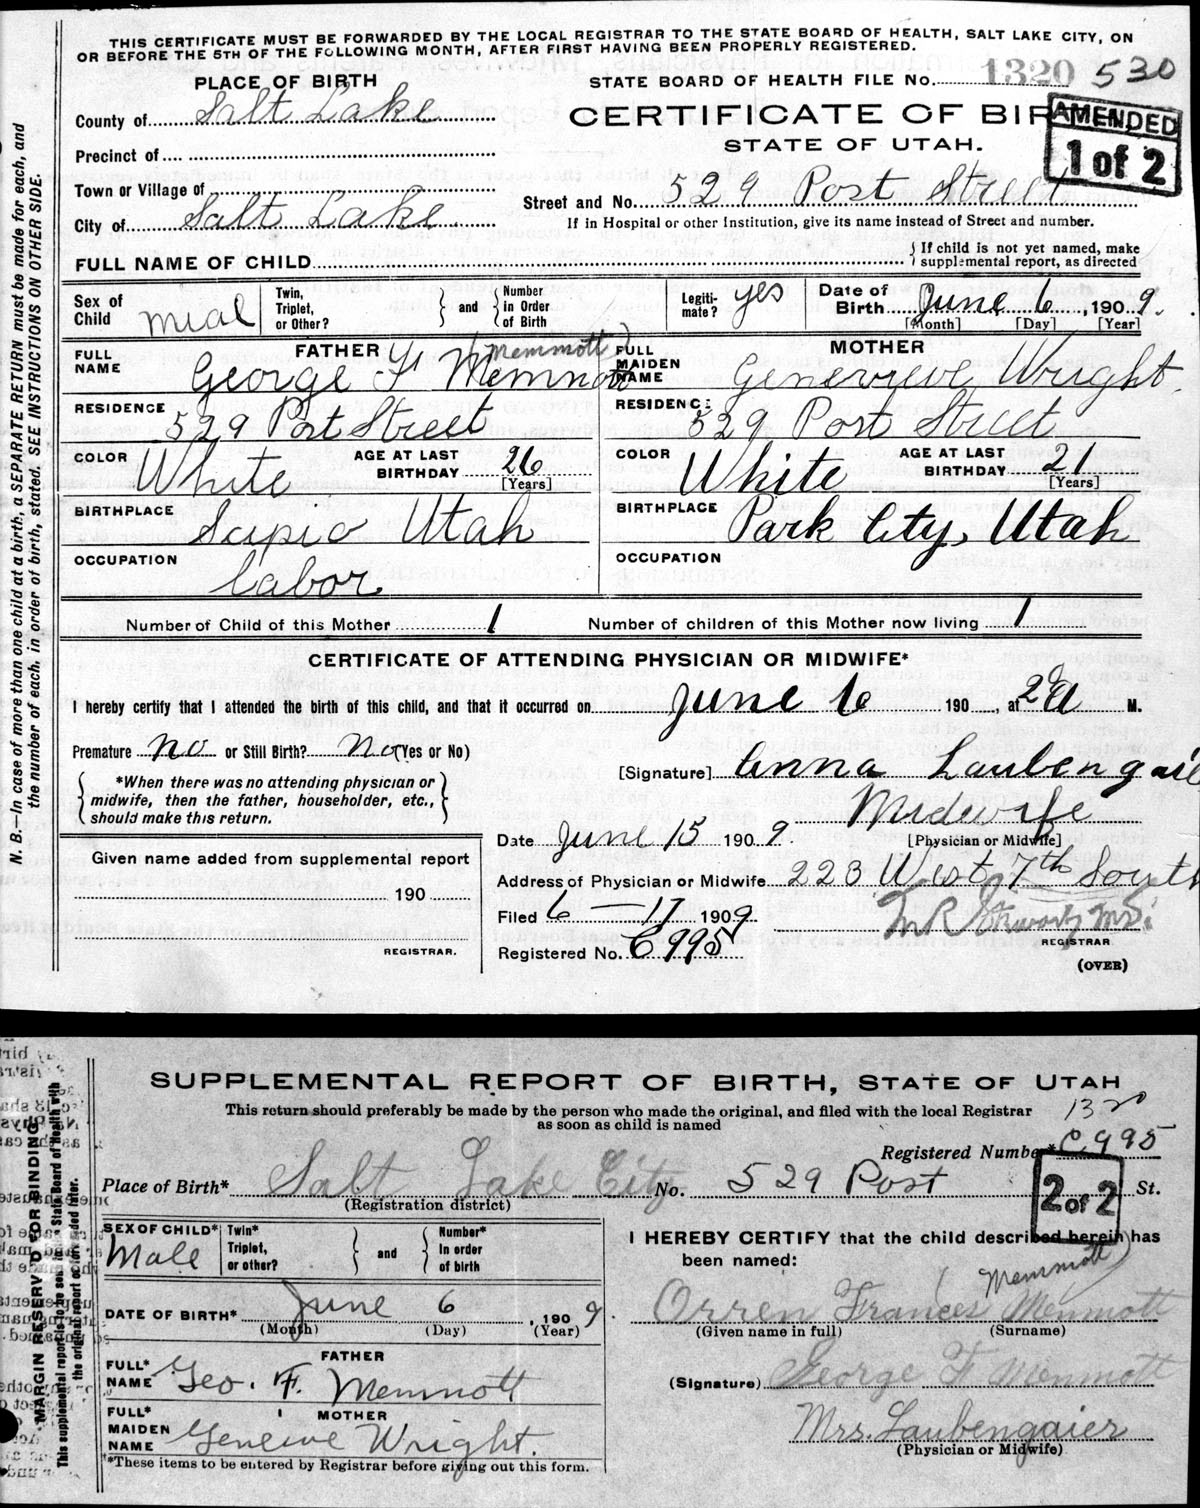 THIS CERTIFICATE MUST BE FORWARDED BY THE LOCAL REGISTRAR TO THE STATE BOARD OF HEALTH, SALT LAKE CITY, ON
OR BEFORE THE 5TH OF THE FOLLOWING MONTH, AFTER FIRST HAVING BEEN PROPERLY REGISTERED.
PLACE OF BIRTH
STATE BOARD OF HEALTH FILE NO. 1320 530
County of Salt Lake
CERTIFICATE OF BIR
AMENDED
1 of 2
Precinct of
STATE OF UTAH.
Town or Village of
Street and No. 529 Post Street
City of Salt Lake
If in Hospital or other Institution, give its name instead of Street and number.
FULL NAME OF CHILD
If child is not yet named, make
supplemental report, as directed
Sex of Child Mial
Twin, Triplet, or Other?
and
Number in Order of Birth
Legiti-mate? yes
Date of Birth June 6, 1909.
[Month] [Day] [Year]
FATHER
FULL NAME George F Memmott (Memmott)
RESIDENCE 529 Post Street
COLOR White AGE AT LAST BIRTHDAY 26
[Years]
BIRTHPLACE Scipio Utah
OCCUPATION Labor
MOTHER
FULL MAIDEN NAME Genevieve Wright.
RESIDENCE 529 Post Street
COLOR White AGE AT LAST BIRTHDAY 21
[Years]
BIRTHPLACE Park City, Utah
OCCUPATION
Number of Child of this Mother 1 Number of children of this Mother now living 1
CERTIFICATE OF ATTENDING PHYSICIAN OR MIDWIFE*
I hereby certify that I attended the birth of this child, and that it occurred on June 6 190, at 2 a M.
Premature no or Still Birth? no (Yes or No)
*When there was no attending physician or
midwife, then the father, householder, etc.,
should make this return.
[Signature] Anna Laubengaie
Midwife
[Physician or Midwife]
Date June 15 1909.
Given name added from supplemental report
190
REGISTRAR.
Address of Physician or Midwife 223 West 7th South
Filed 6—17 1909
REGISTRAR
Registered No. C995
(OVER)
N. B.—In case of more than one child at a birth, a SEPARATE RETURN must be made for each, and
the number of each, in order of birth, stated. SEE INSTRUCTIONS ON OTHER SIDE.
SUPPLEMENTAL REPORT OF BIRTH, STATE OF UTAH
This return should preferably be made by the person who made the original, and filed with the local Registrar
as soon as child is named
1320
Registered Number* C.995
Place of Birth* Salt Lake City No. 529 Post St.
(Registration district)
2 of 2
SEX OF CHILD* Male
Twin* Triplet, or other?
and
Number* In order of birth
DATE OF BIRTH* June 6, 1909
(Month) (Day) (Year)
FATHER
FULL* NAME Geo. F. Memmott
MOTHER
FULL* MAIDEN NAME Geneive Wright.
*These items to be entered by Registrar before giving out this form.
I HEREBY CERTIFY that the child described herein has
been named:
(Memmott)
Orren Frances Menmott
(Given name in full) (Surname)
(Signature) George F Menmott
Mrs. Laubengaier
(Physician or Midwife)
MARGIN RESERVED FOR BINDING
This supplemental report is to be sent to the State Board of Health with
the original report or forwarded later.